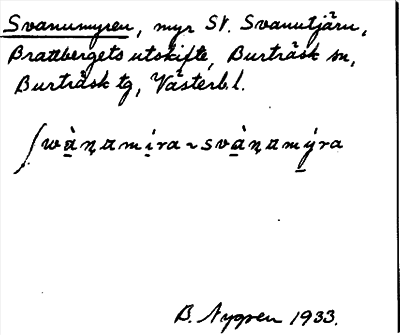 Svanumyren, myr St. Svanutjärn,
Brattbergets utskifte, Burträsk sn,
Burträsk tg, Västerb.l.
ʃwà̱ɳami̱ra ~ svà̱ɳamý̱ra
B. Nygren 1933.